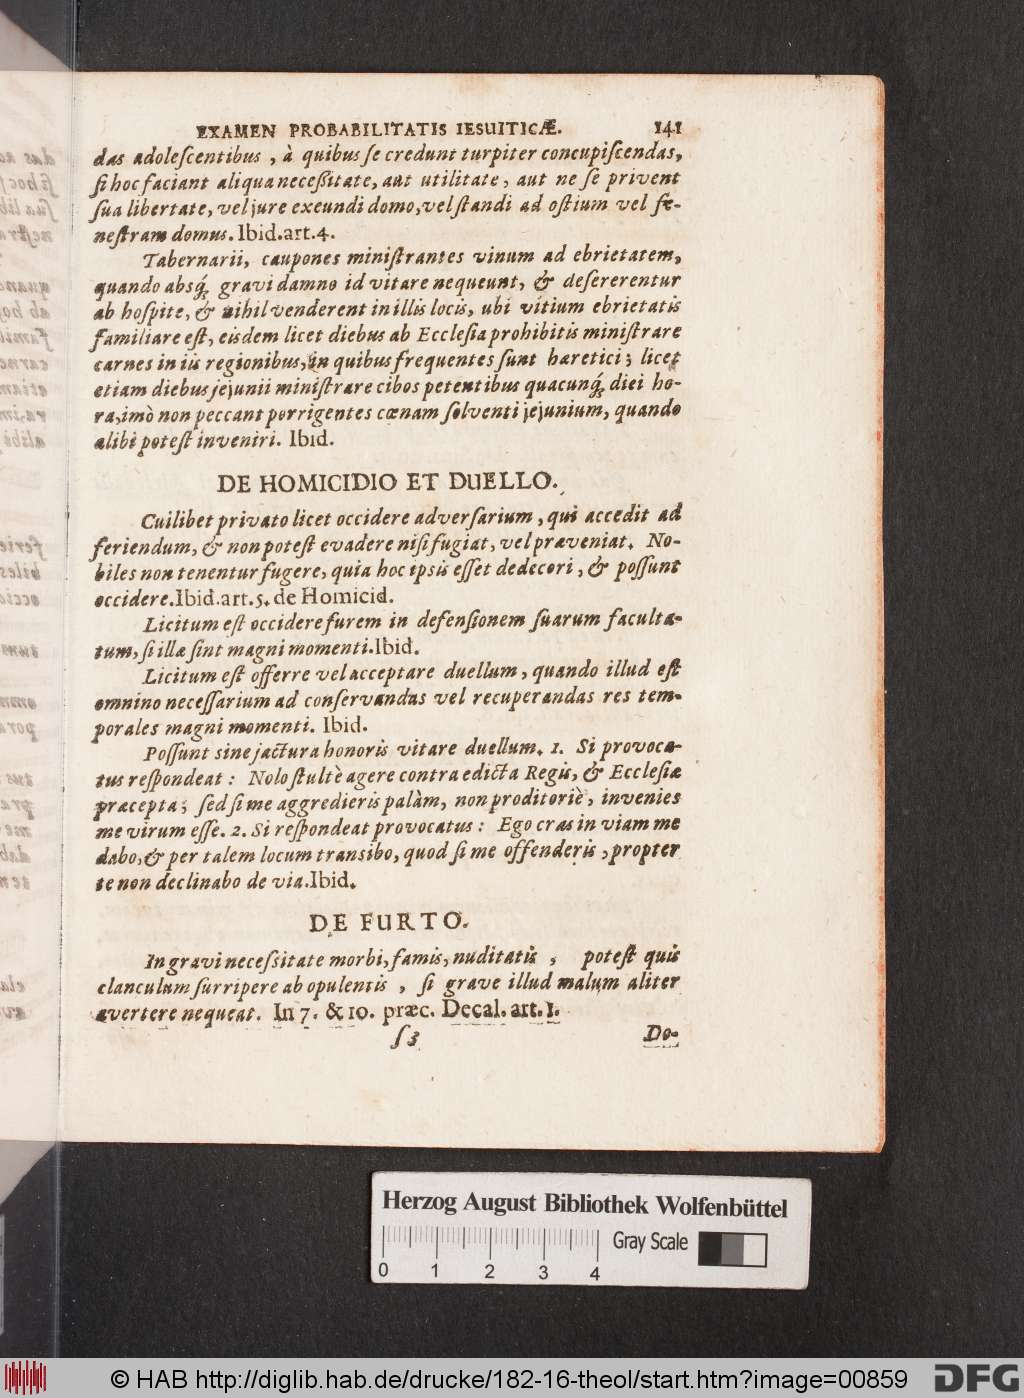 EXAMEN PROBABILITATIS IESUITICÆ. 141
das adoleſcentibus, à quibus ſe credunt turpiter concupiſcendas,
ſi hoc faciant aliqua neceßitate, aut utilitate, aut ne ſe privent
ſua libertate, vel jure exeundi domo, vel ſtandi ad oſtium vel fe-
neſtram domus. Ibid. art. 4.
Tabernarii, caupones miniſtrantes vinum ad ebrietatem,
quando absq́; gravi damno id vitare nequeunt, & deſererentur
ab hoſpite, & nihil venderent in illis locis, ubi vitium ebrietatis
familiare eſt, eisdem licet diebus ab Eccleſia prohibitis miniſtrare
carnes in iis regionibus, in quibus frequentes ſunt hæretici; licet
etiam diebus jejunii miniſtrare cibos petentibus quacunq́; diei ho-
ra, imò non peccant porrigentes cœnam ſolventi jejunium, quando
alibi poteſt inveniri. Ibid.
DE HOMICIDIO ET DUELLO.
Cuilibet privato licet occidere adverſarium, qui accedit ad
feriendum, & non poteſt evadere niſi fugiat, vel præveniat. No-
biles non tenentur fugere, quia hoc ipsis eſſet dedecori, & poſſunt
occidere. Ibid. art. 5. de Homicid.
Licitum eſt occidere furem in defenſionem ſuarum faculta-
tum, ſi illæ ſint magni momenti. Ibid.
Licitum eſt offerre vel acceptare duellum, quando illud eſt
omnino neceſſarium ad conſervandas vel recuperandas res tem-
porales magni momenti. Ibid.
Poſſunt sine jactura honoris vitare duellum. 1. Si provoca-
tus reſpondeat: Nolo ſtultè agere contra edicta Regis, & Eccleſiæ
præcepta; ſed ſi me aggredieris palàm, non proditoriè, invenies
me virum eſſe. 2. Si reſpondeat provocatus: Ego cras in viam me
dabo, & per talem locum transibo, quod ſi me offenderis, propter
te non declinabo de via. Ibid.
DE FURTO.
In gravi neceſsitate morbi, famis, nuditatis, poteſt quis
clanculum ſurripere ab opulentis, ſi grave illud malum aliter
avertere nequeat. In 7. & 10. præc. Decal. art. 1.
ſ 3 Do-
Herzog August Bibliothek Wolfenbüttel
Gray Scale
0 1 2 3 4
© HAB http://diglib.hab.de/drucke/182-16-theol/start.htm?image=00859
DFG